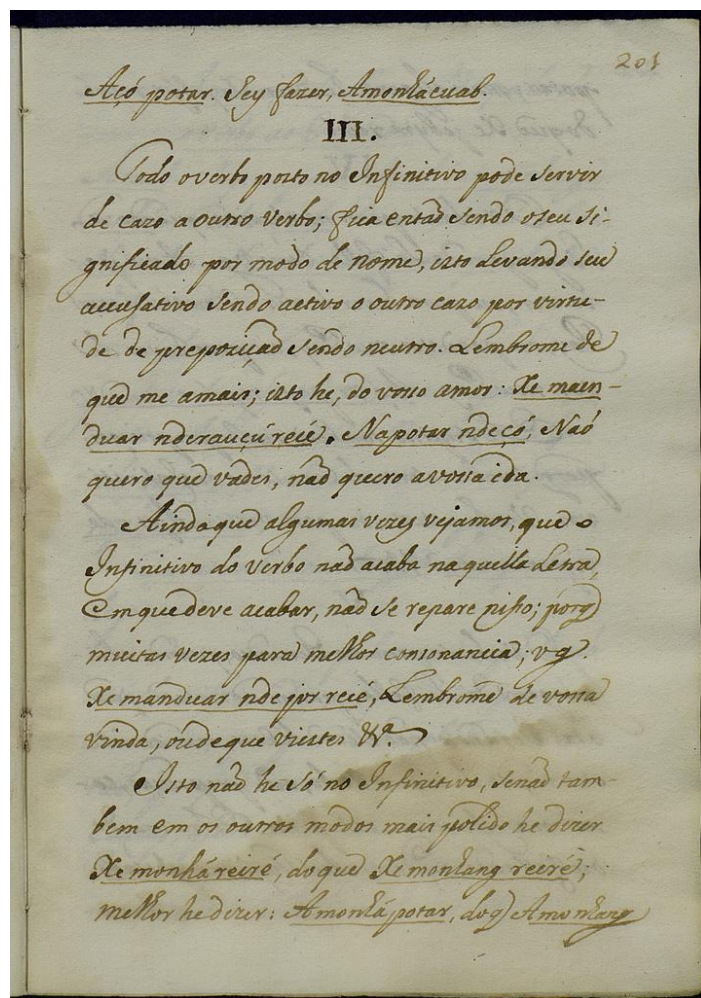 201
Açó potar. Sey fazer, Amonhácuab.
III.
Todo o verbo posto no Infinitivo pode servir
de cazo a outro verbo; fica entaõ sendo o seu si-
gnificado por modo de nome, isto levando seu
accusativo sendo activo o outro cazo por virtu-
de de prepoziçaõ sendo neutro. Lembrome de
que me amais; isto he, do vosso amor: Xe maen-
duar nderauçú recé. Napotar ndeçó, Naõ
quero que vades, naõ quero a vossa ida.
Ainda que algumas vezes vejamos, que o
Infinitivo do verbo naõ acaba naquella Letra,
Em que deve acabar, naõ se repare nisso; porq̃
muitas vezes para melhor consonancia; vg.
Xe manduar nde jur recé, Lembrome de vossa
vinda, ou de que viestes &ª.
Isto naõ he só no Infinitivo, senaõ tam-
bem em os outros modos mais polido he dizer
Xe monhá reiré, do que Xe monhang reiré;
melhor he dizer: Amonhá potar, do q̃ Amonhang